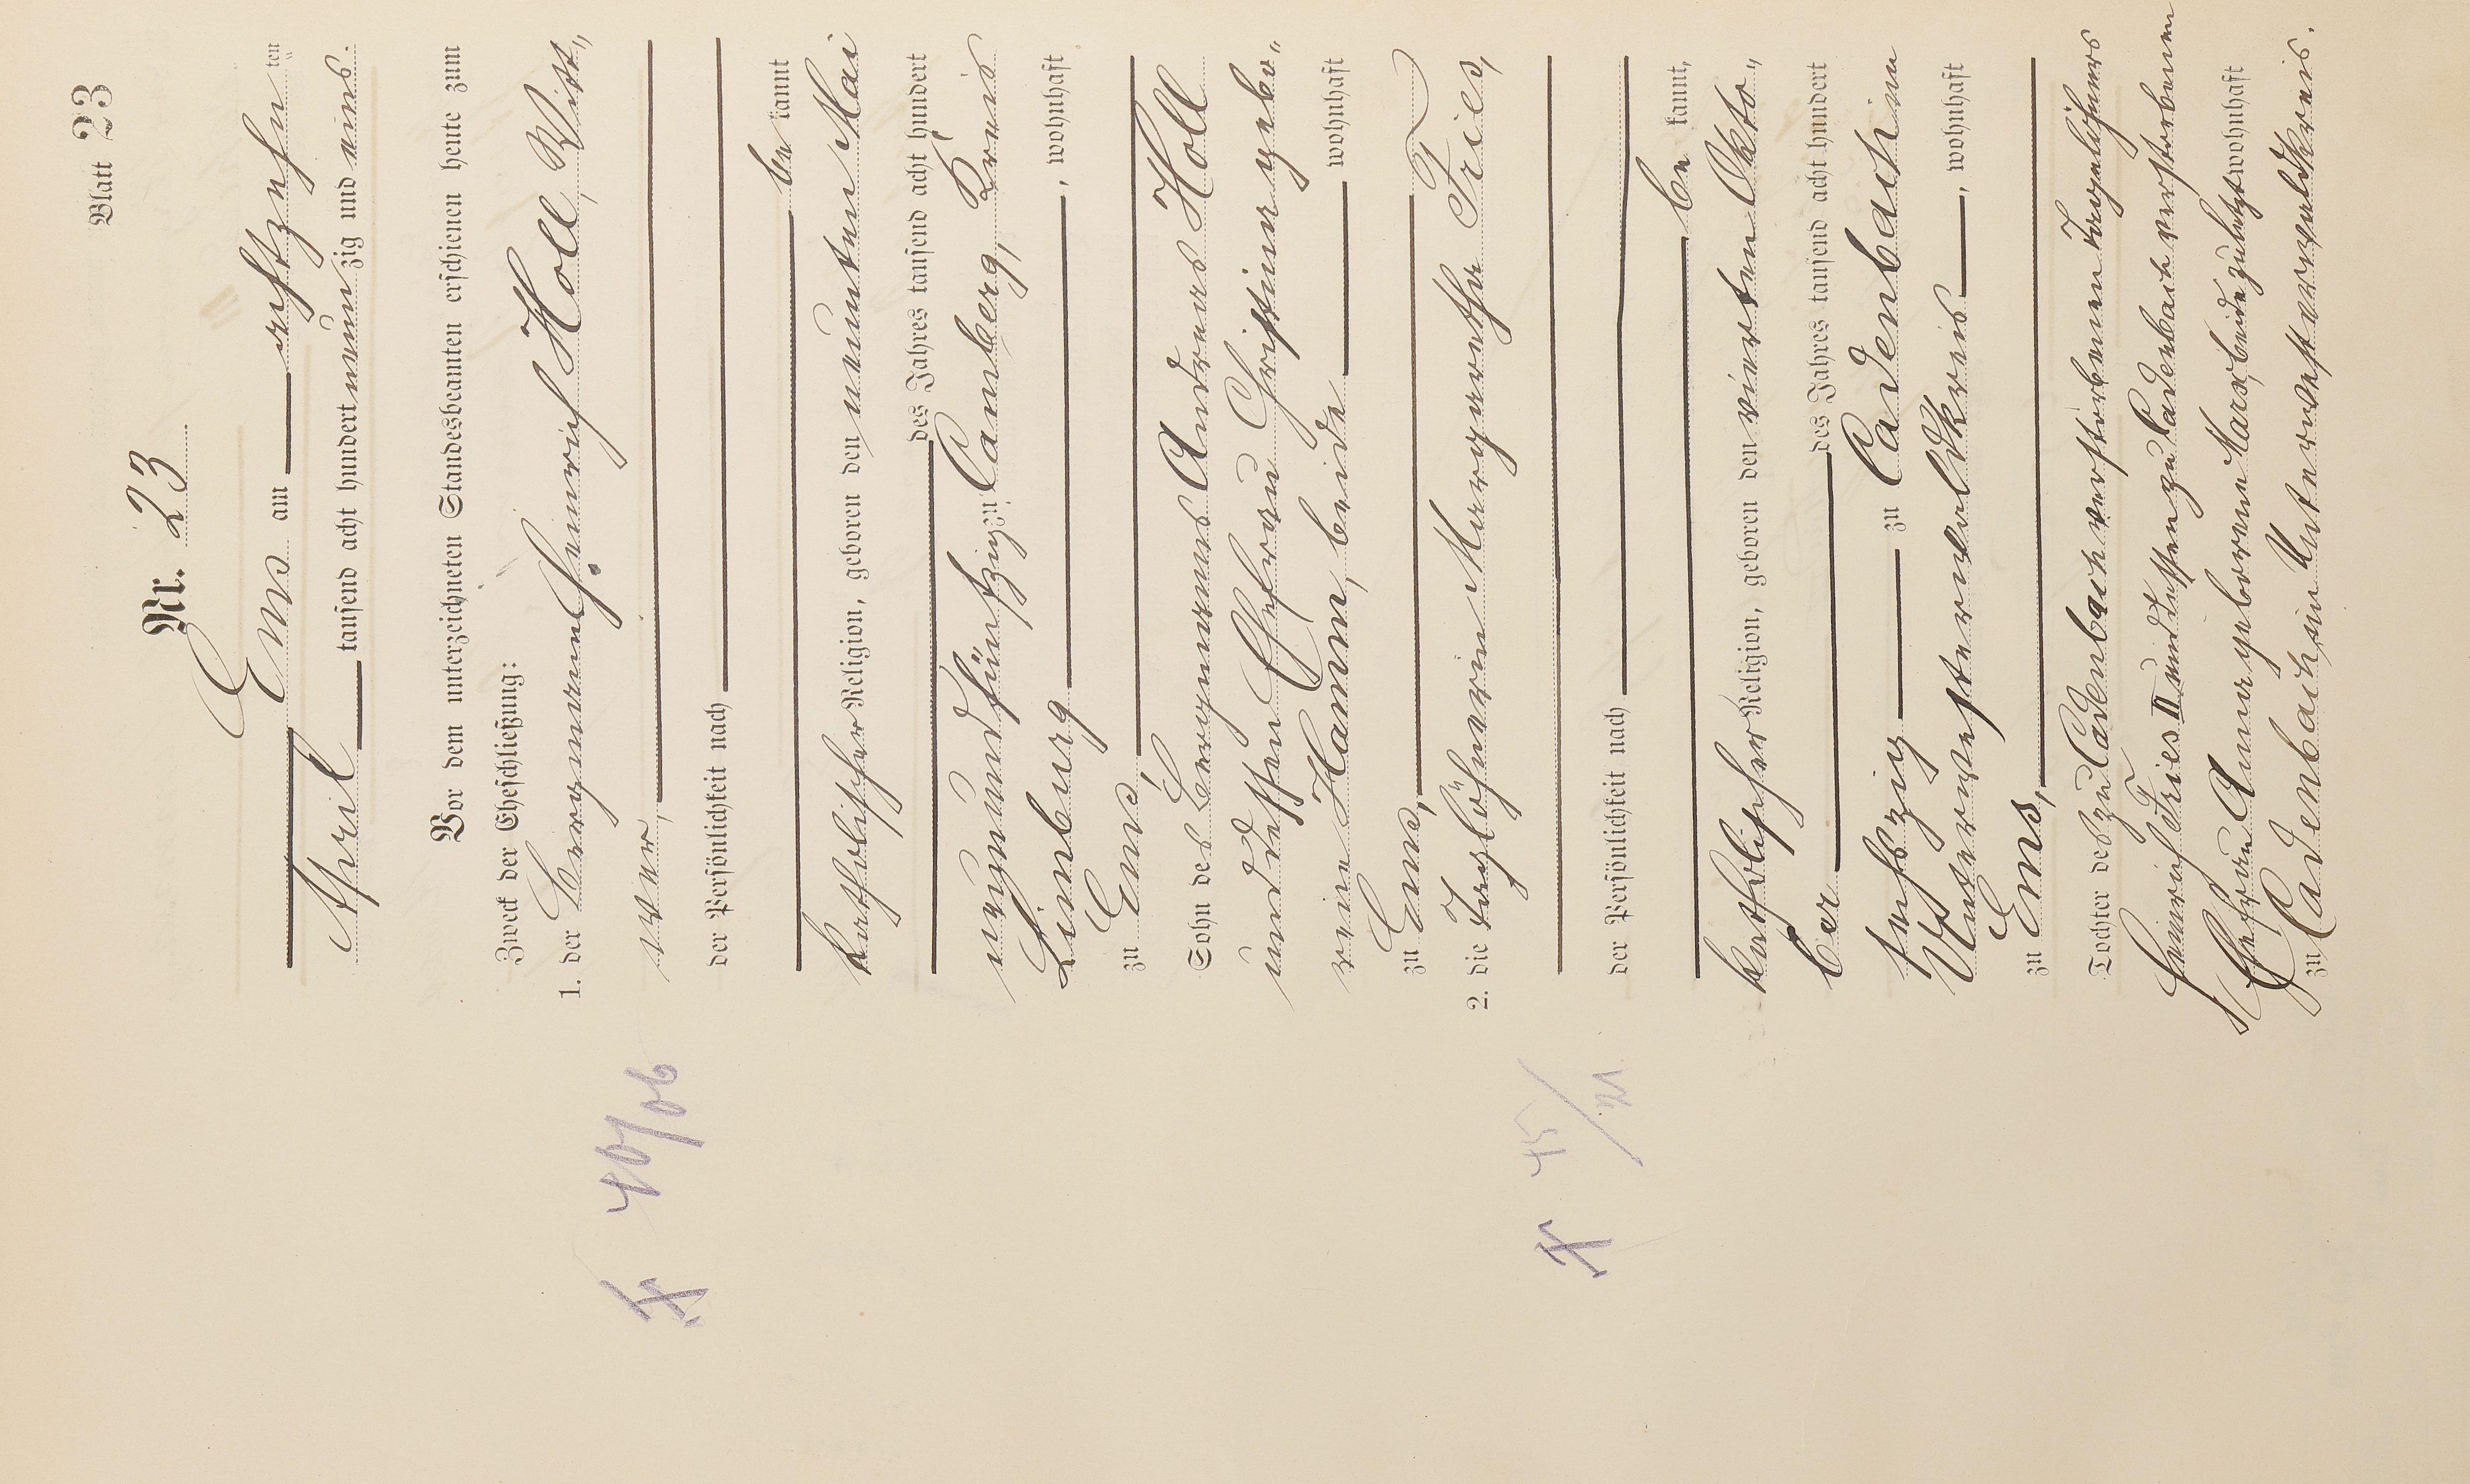 Blatt 23
Nr. 23
Ems am achtzehn ten
April tausend acht hundert neunzig und eins.
Vor dem unterzeichneten Standesbeamten erschienen heute zum
Zweck der Eheschließung:
1. der Bergmann Heinrich Holl, Witt„
wer,
der Persönlichkeit nach
be kannt
katholischer Religion, geboren den neunten Mai
des Jahres tausend acht hundert
neunundfünfzig zu Camberg, Kreis
Limburg, wohnhaft
zu Ems,
Sohn des Bergmannes Andreas Holl
und dessen Ehefrau Christiane gebo„
rene Hamm, beide wohnhaft
zu Ems,
2. die Taglöhnerin Margarethe Fries,
der Persönlichkeit nach
be kannt,
katholischer Religion, geboren den vierten Okto„
ber des Jahres tausend acht hundert
sechszig zu Cadenbach im
Unterwesterwaldkreis, wohnhaft
zu Ems,
Tochter des zu Cadenbach verstorbenen Taglöhners
Heinrich Fries II und dessen zu Cadenbach verstorbenen
Ehefrau Anna geborene Marx, beide zuletzt wohnhaft
zu Cadenbach, im Unterwesterwaldkreis.